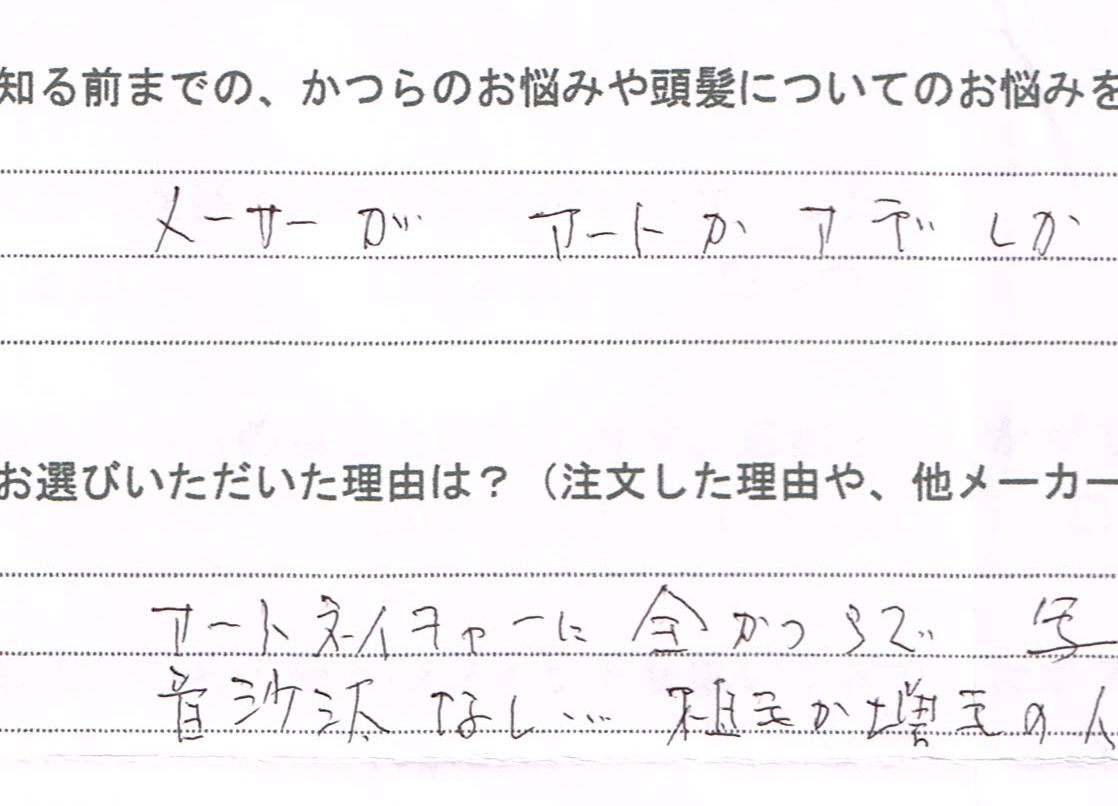 知る前までの、かつらのお悩みや頭髪についてのお悩みを
メーサーが アートか アデ しか
お選びいただいた理由は？（注文した理由や、他メーカー
アートネイチャーに 全かつらで 写
音沙汰なし… 植毛か増毛の人